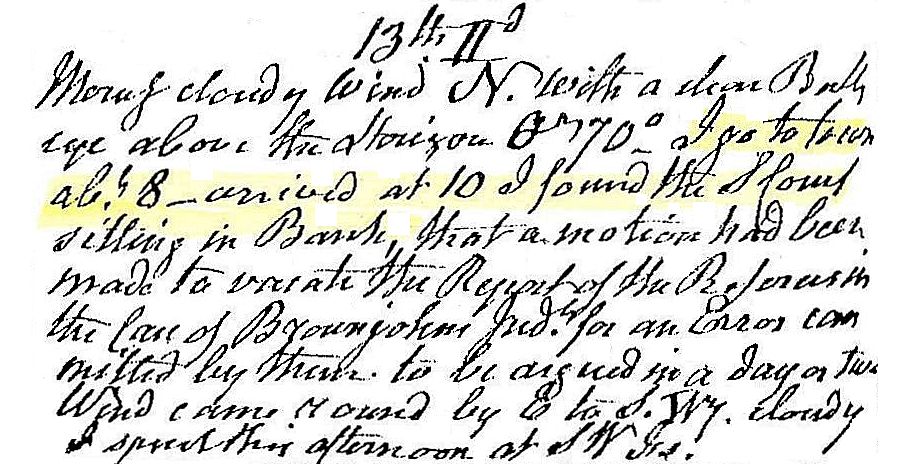 13th IId
Morng cloudy Wind N. With a clear Bulls
eye above the Horizon 70° I go to town
abt 8 – arrived at 10 I found the S Court
sitting in Bank, that a motion had been
made to vacate the Report of the Referees in
the Case of Brounjohns for an Error com
mitted by them. to be argued in a day or two
Wind came round by E to S. Wy. cloudy
I spent this afternoon at S W